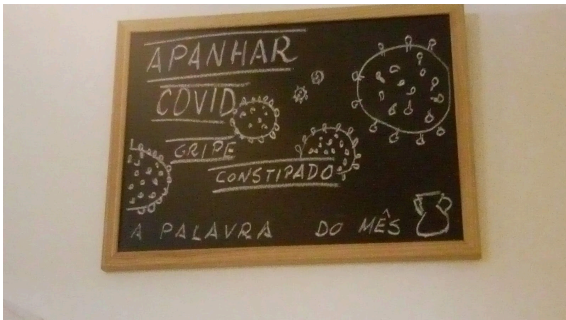 APANHAR
COVID
GRIPE
CONSTIPADO
A PALAVRA DO MÊS